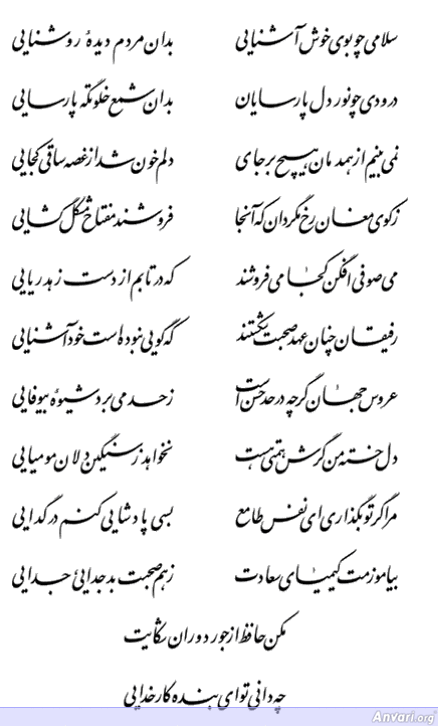 سلامی چو بوی خوش آشنایی بدان مردم دیدهٔ روشنایی
درودی چو نور دل پارسایان بدان شمع خلوتگه پارسایی
نمی‌بینم از همدمان هیچ بر جای دلم خون شد از غصه ساقی کجایی
ز کوی مغان رخ مگردان که آنجا فروشند مفتاح مشکل گشایی
می صوفی افکن کجا می‌فروشند که در تابم از دست زهد ریایی
رفیقان چنان عهد صحبت شکستند که گویی نبوده‌ست خود آشنایی
عروس جهان گرچه در حد حسن است ز حد می‌برد شیوهٔ بیوفایی
دل خسته من گرش همتی هست نخواهد ز سنگین دلان مومیایی
مرا گر تو بگذاری ای نفس طامع بسی پادشایی کنم در گدایی
بیاموزمت کیمیای سعادت ز هم صحبت بد جدایی جدایی
مکن حافظ از جور دوران شکایت
چه دانی تو ای بنده کار خدایی
Anvari.org